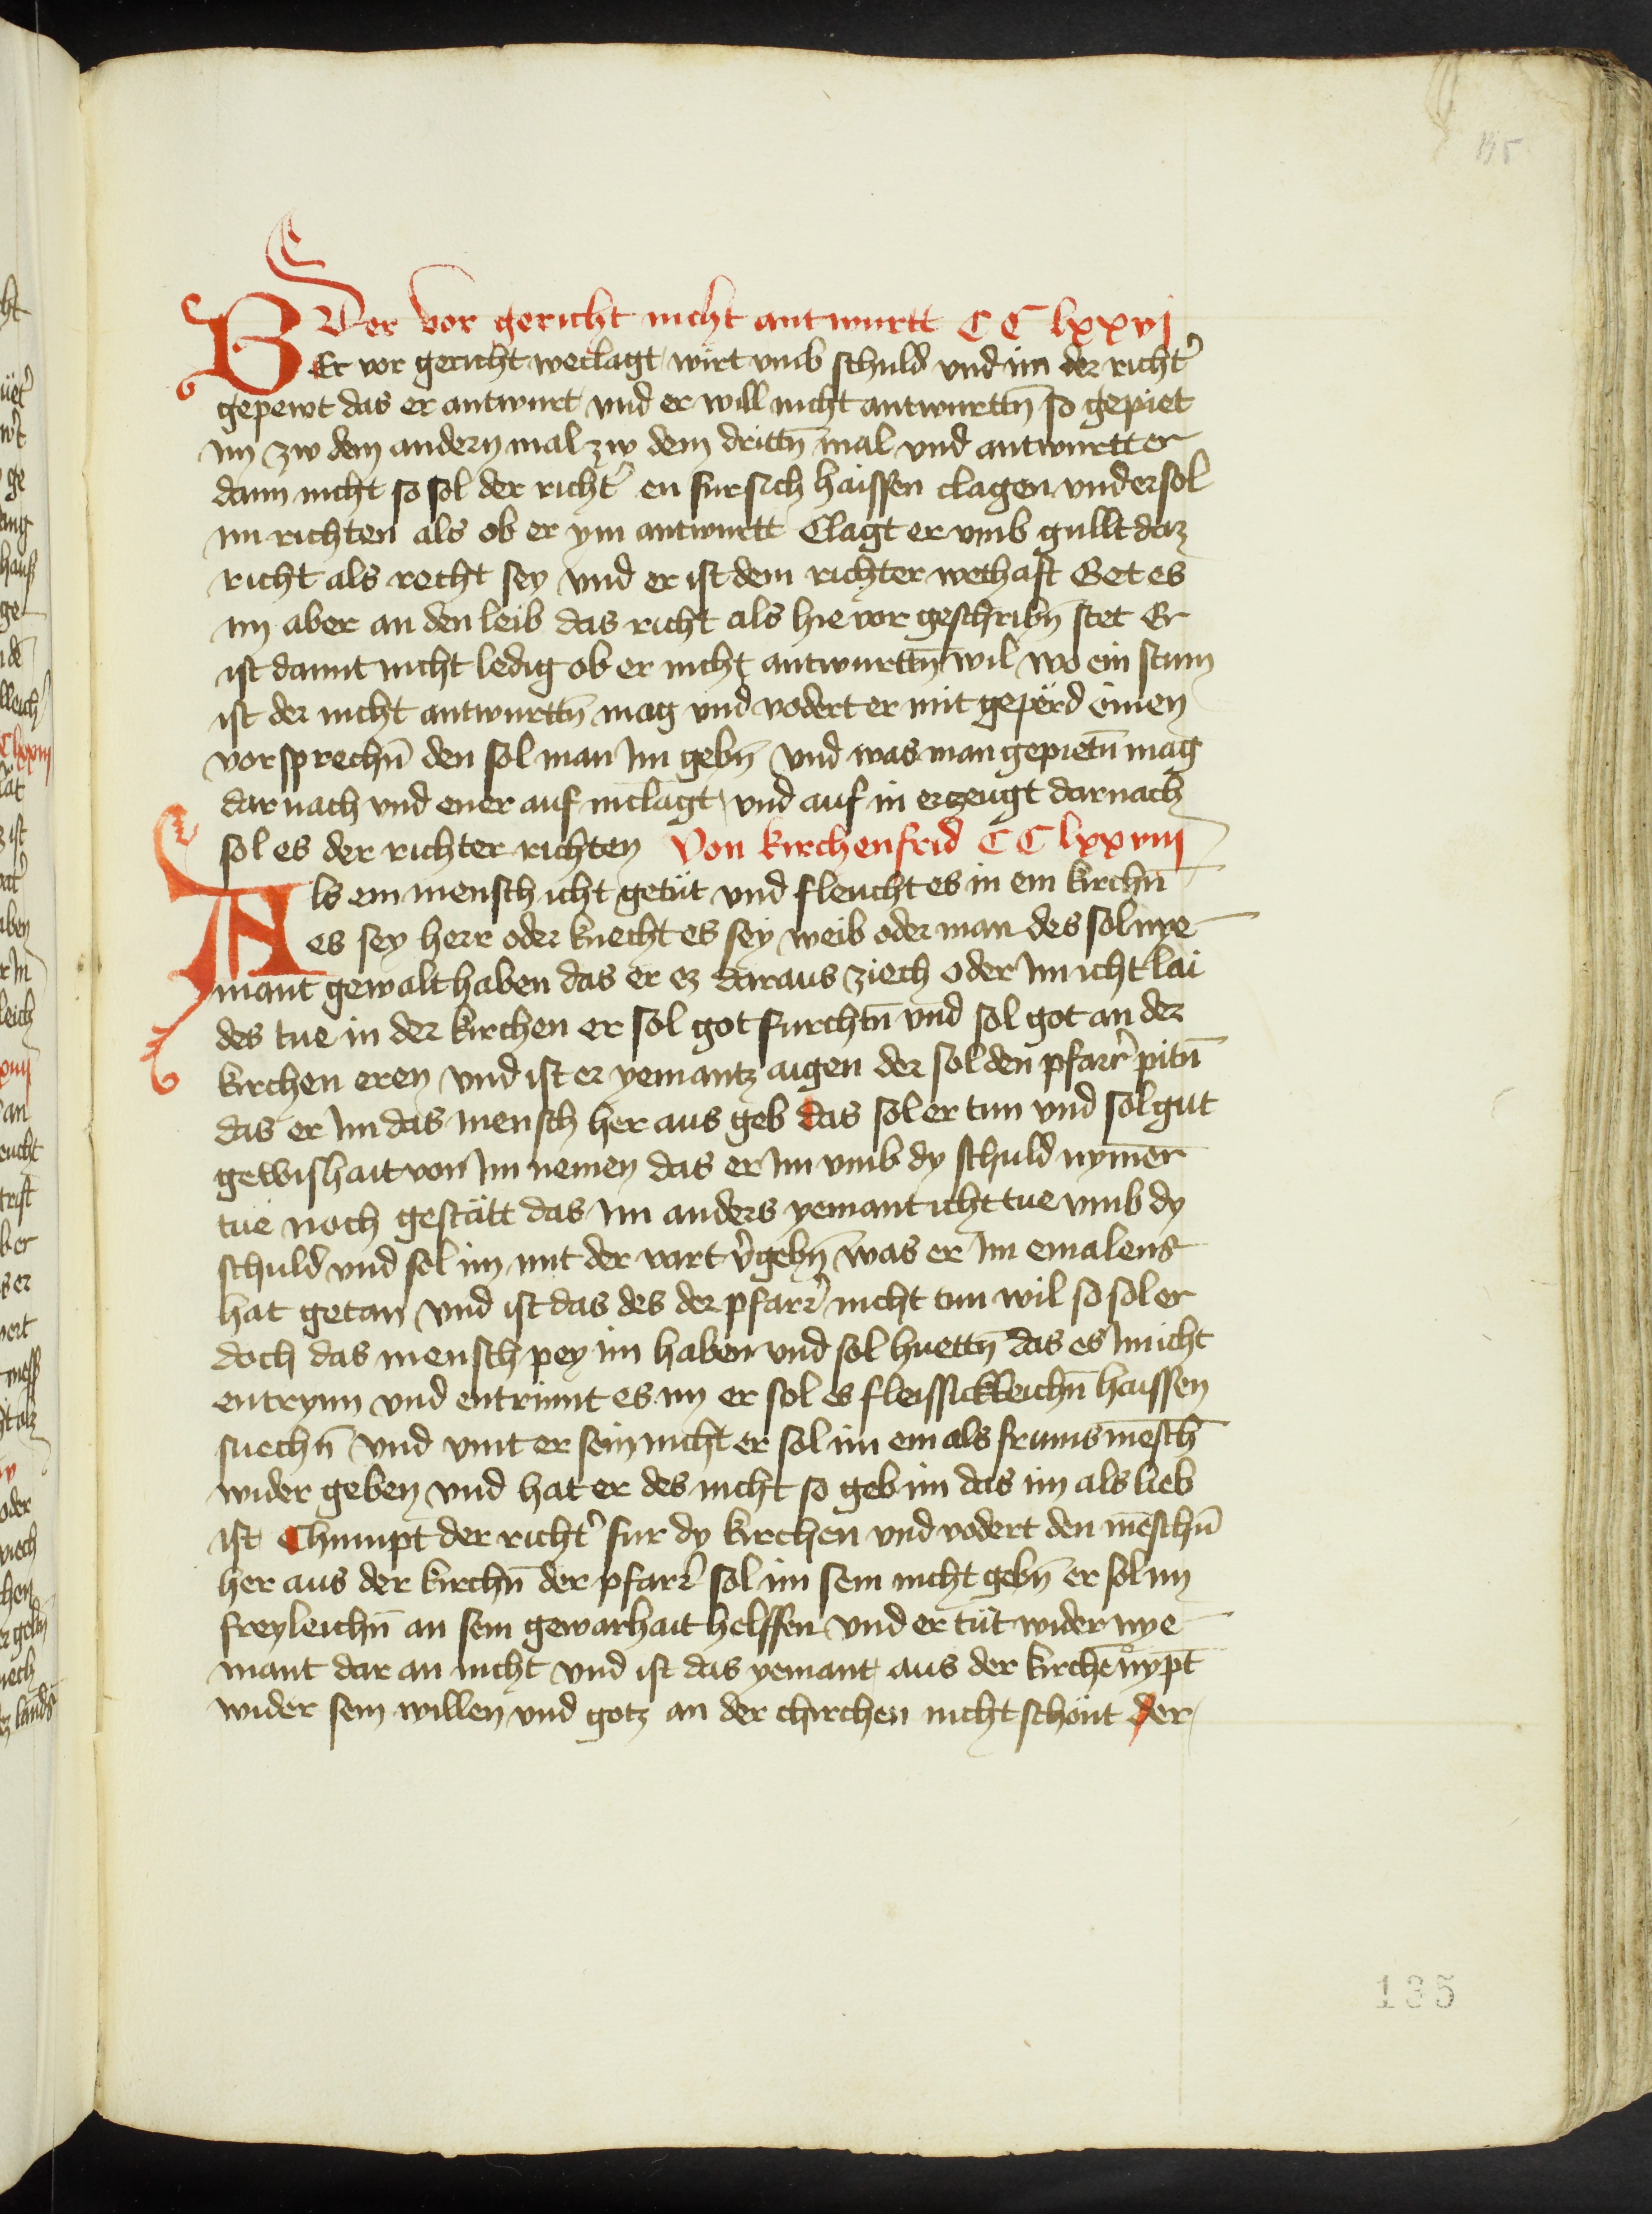 195
Der vor gericht nicht antwurtt CC lxxvj
BEr vor gericht weclagt wirt vmb schuld vnd im der richt̾
gepewt das er antwurt vnd er will nicht antwurttn̄ so gepiet
im zw dem andern mal zw dem drittn̄ mal vnd antwurtt er
dann nicht so sol der richt̾ en fur sich haissen clagen vnd er sol
im richten als ob er ym antwurtt Clagt er vmb gullt daz
richt als recht sey vnd er ist dem richter wethaft Get es
im aber an den leib das richt als hie vor geschribn̄ stet Er
ist damit nicht ledig ob er nicht antwurttn̄ wil wo ein stum
ist der nicht antwurttn̄ mag vnd vodert er mit geperd einen
vorsprechn̄ den sol man Im gebn̄ vnd was man gepietn̄ mag
dar nach vnd ener auf in clagt vnd auf in erczeugt dar nach
sol es der richter richten Von kirchenfrid CC lxxviij
Als ein mensch icht getüt vnd fleucht es in ein kirchn̄
es sey herr oder knecht es sey weib oder man des sol nye
mant gewalt haben das er ez daraus ziech oder Im icht lai
des tue in der kirchen er sol got furchtn̄ vnd sol got an der
kirchen eren vnd ist er yemantz aigen der sol den pfarr̾ pitn̄
das er Im das mensch her aus geb das sol er tun vnd sol gut
gewishait von Im nemen das er Im vmb dy schuld nymer̄
tue noch gestätt das Im anders yemant icht tue vmb dy
schuld vnd sol im mit der vart v̾gebn̄ was er Im emalens
hat getan vnd ist das des der pfarr̾ nicht tun wil so sol er
doch das mensch pey im haben vnd sol huettn̄ das es Im icht
entrynn vnd entrinnt es im er sol es fleissickleichn̄ haissen
suechn̄ vnd vint er sein nicht er sol im ein als frumes mēsch
wider geben vnd hat er des nicht so geb im das im als lieb
ist Chumpt der richt̾ fur dy kirchen vnd vodert den mēschn̄
her aus der kirchn̄ der pfarr̾ sol im sein nicht gebn̄ er sol im
freyleichn̄ an sein gewarhait helffen vnd er tüt wider nye
mant dar an nicht vnd ist das yemant aus der kirchē nypt
wider sein willen vnd gotz an der chirchen nicht schönt der
135